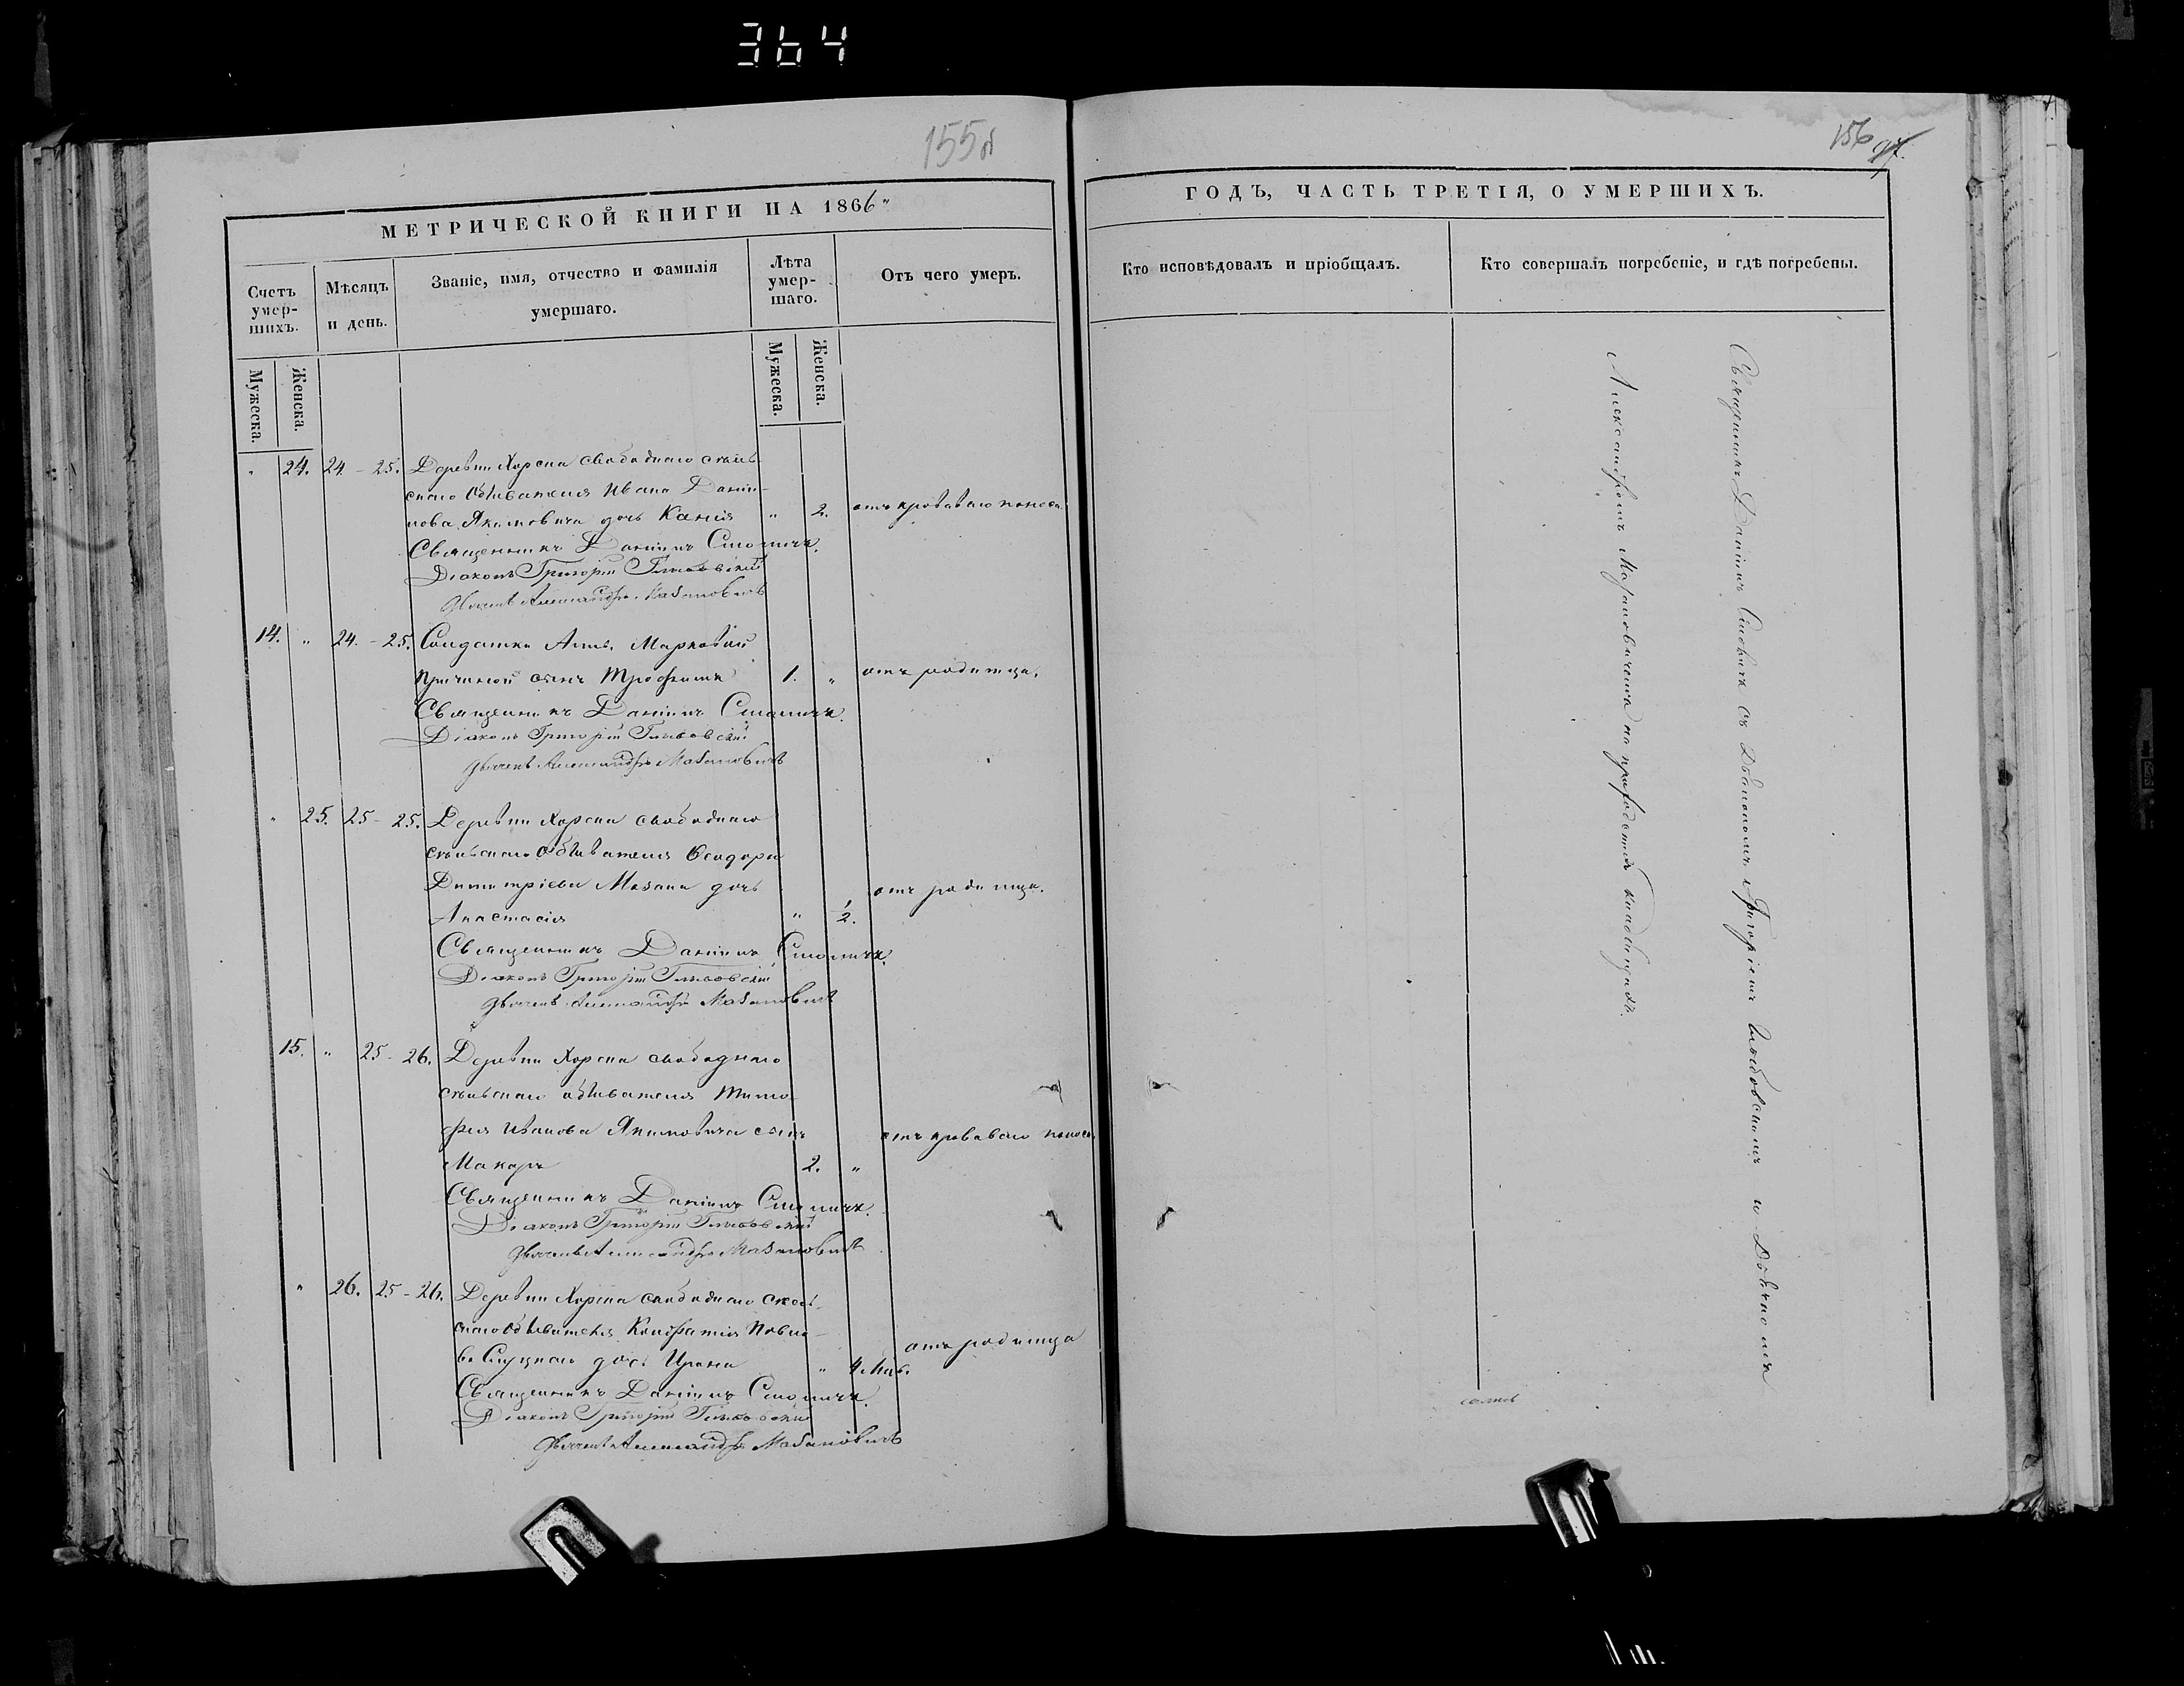 364
155об
156
97.
МЕТРИЧЕСКОЙ КНИГИ НА 1866"
Счетъ умер-
шихъ.
Мѣсяцъ
и день.
Званіе, имя, отчество и фамилія
умершаго.
Лѣта
умер-
шаго.
Отъ чего умеръ.
Мужеска.
Женска.
Мужеска.
Женска.
" 24. 24 - 25. Деревни Хорска свободнаго сель-
скаго обывателя Ивана Дани-
лова Якимовича дочь Ксенія " 2. отъ кроваваго поноса
Священникъ Даніилъ Смоличъ.
Діаконъ Григорій
Александръ Мазановичъ
14. " 24. - 25. Солдатки Анны Марковой
сынъ Трофимъ 1. " отъ родимца.
Священникъ Даніилъ Смоличъ.
Діаконъ Григорій
Александръ Мазановичъ
" 25. 25 - 25. Деревни Хорска свободнаго
сельскаго обывателя Ѳеодора
Димитріева Мазана дочь
Анастасія " 1/2. отъ родимца.
Священникъ Даніилъ Смоличъ.
Діаконъ Григорій
Александръ Мазановичъ
15. " 25 - 26. Деревни Хорска свободнаго
сельскаго обывателя Тимо-
фея Иванова Якимовича сынъ
Макаръ 2. " отъ кроваваго поноса
Священникъ Даніилъ Смоличъ.
Діаконъ Григорій
Александръ Мазановичъ
" 26. 25 - 26. Деревни Хорска свободнаго сель-
скаго обывателя Кондратія Павло-
ва дочь Ирина " 4 мѣс. отъ родимца
Священникъ Даніилъ Смоличъ.
Діаконъ Григорій
Александръ Мазановичъ
ГОДЪ, ЧАСТЬ ТРЕТІЯ, О УМЕРШИХЪ.
Кто исповѣдовалъ и пріобщалъ.
Кто совершалъ погребеніе, и гдѣ погребены.
Священникъ Даніилъ Смоличъ съ Діакономъ Григоріемъ и Дьячкомъ
Александромъ Мазановичемъ на приходскомъ кладбищѣ.